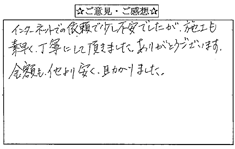 ☆ご意見・ご感想☆
インターネットでの依頼で少し不安でしたが、施工も
素早く、丁寧にして頂きました。ありがとうございます。
金額も、他より安く、助かりました。